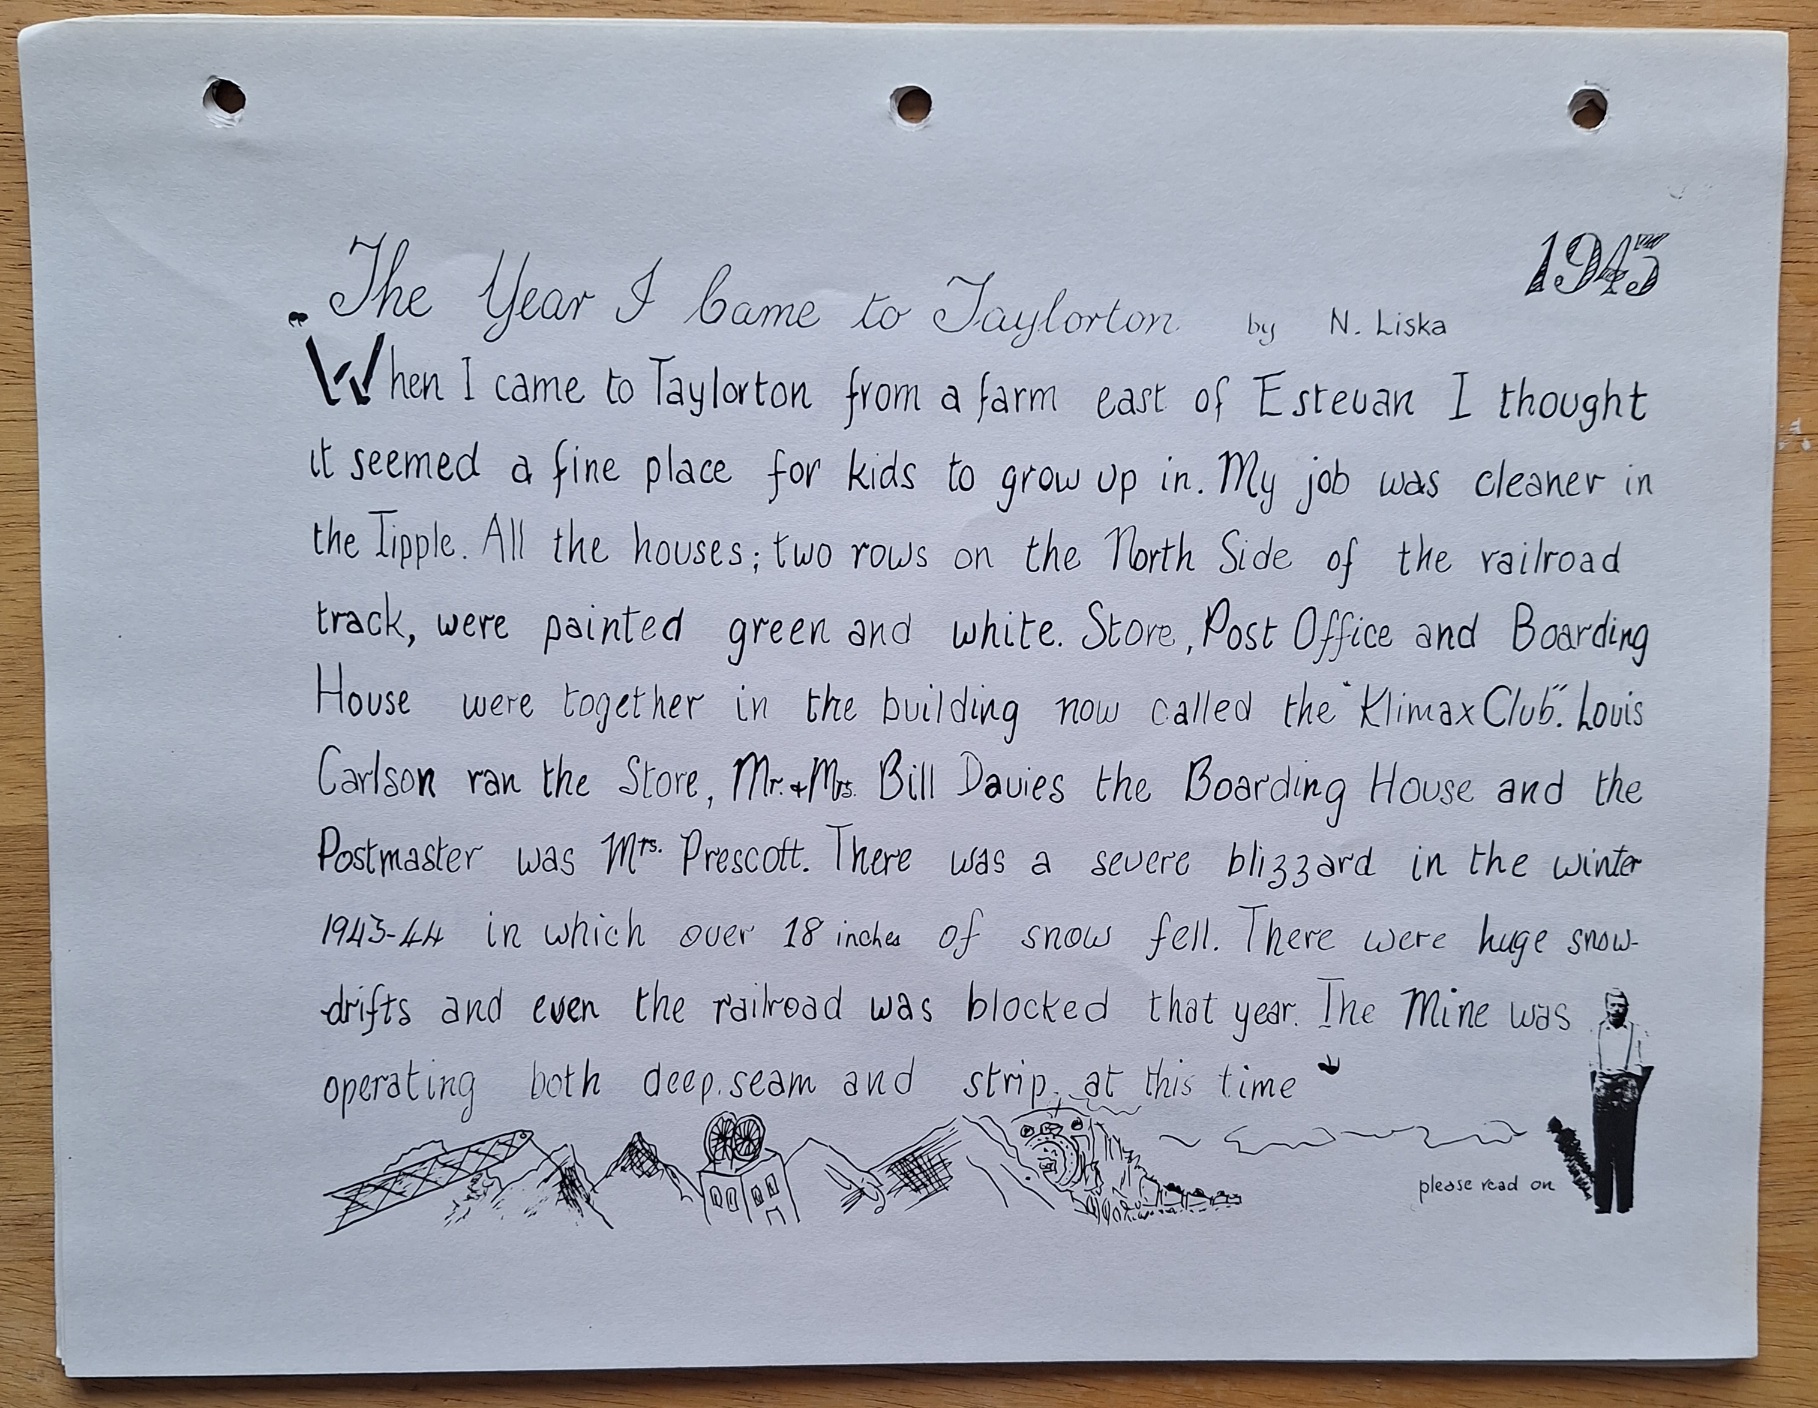 1943
The Year I Came to Taylorton by N. Liska
"When I came to Taylorton from a farm east of Estevan I thought
it seemed a fine place for kids to grow up in. My job was cleaner in
the Tipple. All the houses; two rows on the North Side of the railroad
track, were painted green and white. Store, Post Office and Boarding
House were together in the building now called the "Klimax Club". Louis
Carlson ran the Store, Mr. + Mrs. Bill Davies the Boarding House and the
Postmaster was Mrs. Prescott. There was a severe blizzard in the winter
1943-44 in which over 18 inches of snow fell. There were huge snow-
drifts and even the railroad was blocked that year. The Mine was
operating both deep.seam and strip, at this time"
please read on